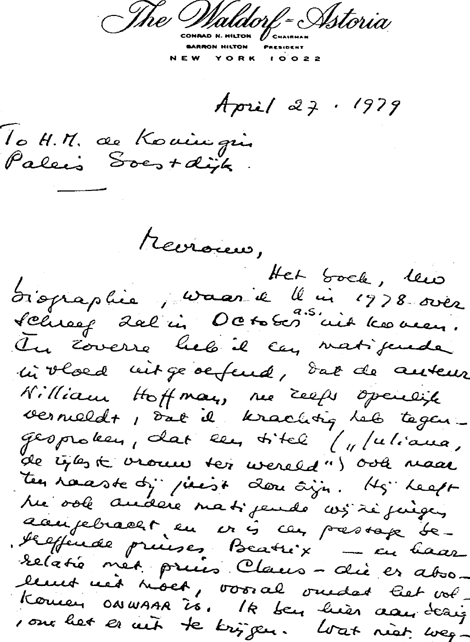 The Waldorf=Astoria
CONRAD N. HILTON CHAIRMAN
BARRON HILTON PRESIDENT
NEW YORK 10022
April 27. 1979
To H.M. de Koningin
Paleis Soestdijk.
Mevrouw,
Het boek, Uw
biographie, waar ik U in 1978 over
schreef zal in October a.s. uit komen.
In zoverre heb ik een matigende
invloed uitgeoefend, dat de auteur
William Hoffman, nu zelfs openlijk
vermeldt, dat ik krachtig heb tegen-
gesproken, dat een titel („Juliana,
de rijkste vrouw ter wereld") ook maar
ten naaste bij juist zou zijn. Hij heeft
nu ook andere matigende wijzigingen
aangebracht en er is een passage be-
treffende prinses Beatrix — en haar
relatie met prins Claus - die er abso-
luut uit moet, vooral omdat het vol-
komen ONWAAR is. Ik ben hier aan bezig
, om het er uit te krijgen. Wat niet weg